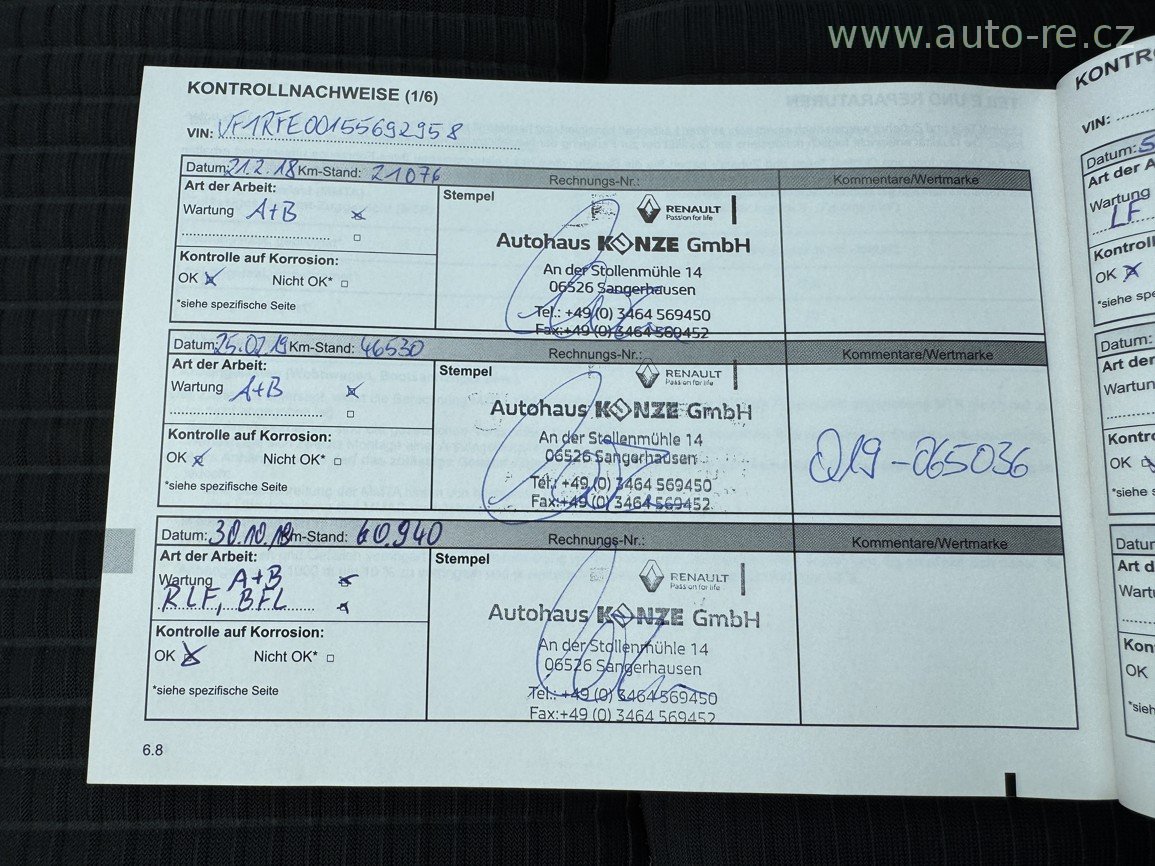 www.auto-re.cz
KONTROLLNACHWEISE (1/6)
VIN: VF1RFE00155692958
Datum: 21.2.18 Km-Stand: 21076 Rechnungs-Nr.: Kommentare/Wertmarke
Art der Arbeit:
Wartung A+B
Kontrolle auf Korrosion:
OK Nicht OK*
*siehe spezifische Seite
Stempel
RENAULT
Passion for life
Autohaus KONZE GmbH
An der Stollenmühle 14
06526 Sangerhausen
Tel.: +49 (0) 3464 569450
Fax:+49 (0) 3464 569452
Datum: 25.02.19 Km-Stand: 46530 Rechnungs-Nr.: Kommentare/Wertmarke
Art der Arbeit:
Wartung A+B
Kontrolle auf Korrosion:
OK Nicht OK*
*siehe spezifische Seite
Stempel
RENAULT
Passion for life
Autohaus KONZE GmbH
An der Stollenmühle 14
06526 Sangerhausen
Tel.: +49 (0) 3464 569450
Fax:+49 (0) 3464 569452
Q19-065036
Datum: 30.10.19 Km-Stand: 60.940 Rechnungs-Nr.: Kommentare/Wertmarke
Art der Arbeit:
Wartung A+B
RLF, BFL
Kontrolle auf Korrosion:
OK Nicht OK*
*siehe spezifische Seite
Stempel
RENAULT
Passion for life
Autohaus KONZE GmbH
An der Stollenmühle 14
06526 Sangerhausen
Tel.: +49 (0) 3464 569450
Fax:+49 (0) 3464 569452
6.8
VIN:
Datum:
Art der
Wartung
LF
OK
Datum:
Art der
OK
Art d
OK